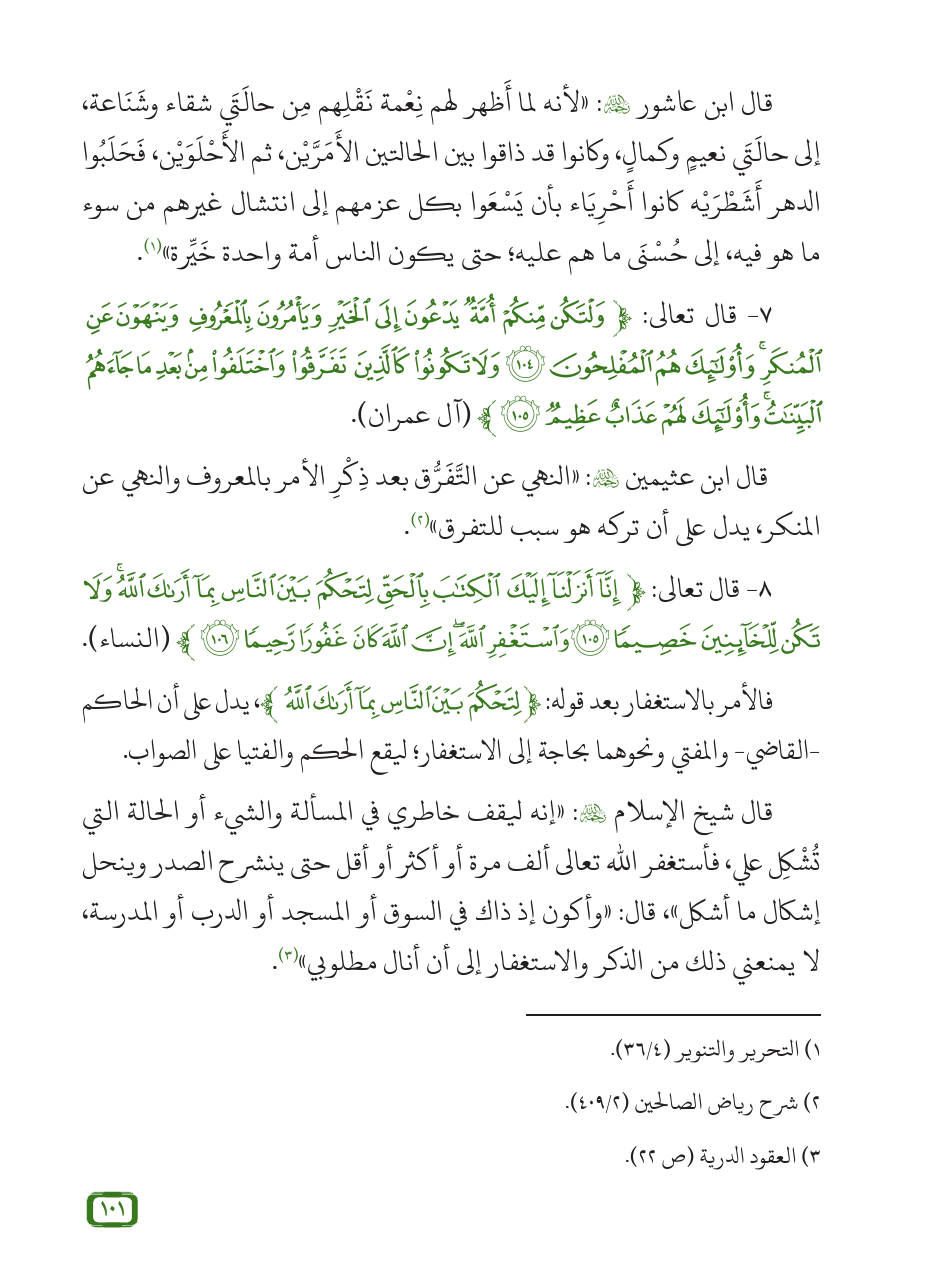 قال ابن عاشور ﵀: «لأنه لما أَظهر لهم نِعْمة نَقْلِهم مِن حالَتَي شقاء وشَنَاعة،
إلى حالَتَي نعيمٍ وكمالٍ، وكانوا قد ذاقوا بين الحالتين الأَمَرَّيْن، ثم الأَحْلَوَيْن، فَحَلَبُوا
الدهر أَشَطْرَيْه كانوا أَحْرِيَاء بأن يَسْعَوا بكل عزمهم إلى انتشال غيرهم من سوء
ما هو فيه، إلى حُسْنَى ما هم عليه؛ حتى يكون الناس أمة واحدة خَيِّرة»(١).
٧- قال تعالى: ﴿وَلْتَكُن مِّنكُمْ أُمَّةٌ يَدْعُونَ إِلَى ٱلْخَيْرِ وَيَأْمُرُونَ بِٱلْمَعْرُوفِ وَيَنْهَوْنَ عَنِ
ٱلْمُنكَرِۚ وَأُوْلَٰٓئِكَ هُمُ ٱلْمُفْلِحُونَ ١٠٤ وَلَا تَكُونُواْ كَٱلَّذِينَ تَفَرَّقُواْ وَٱخْتَلَفُواْ مِنۢ بَعْدِ مَا جَآءَهُمُ
ٱلْبَيِّنَٰتُۚ وَأُوْلَٰٓئِكَ لَهُمْ عَذَابٌ عَظِيمٌ ١٠٥﴾ (آل عمران).
قال ابن عثيمين ﵀: «النهي عن التَّفَرُّق بعد ذِكْرِ الأمر بالمعروف والنهي عن
المنكر، يدل على أن تركه هو سبب للتفرق»(٢).
٨- قال تعالى: ﴿إِنَّآ أَنزَلْنَآ إِلَيْكَ ٱلْكِتَٰبَ بِٱلْحَقِّ لِتَحْكُمَ بَيْنَ ٱلنَّاسِ بِمَآ أَرَىٰكَ ٱللَّهُۚ وَلَا
تَكُن لِّلْخَآئِنِينَ خَصِيمًا ١٠٥ وَٱسْتَغْفِرِ ٱللَّهَۖ إِنَّ ٱللَّهَ كَانَ غَفُورًا رَّحِيمًا ١٠٦﴾ (النساء).
فالأمر بالاستغفار بعد قوله: ﴿لِتَحْكُمَ بَيْنَ ٱلنَّاسِ بِمَآ أَرَىٰكَ ٱللَّهُ﴾، يدل على أن الحاكم
-القاضي- والمفتي ونحوهما بحاجة إلى الاستغفار؛ ليقع الحكم والفتيا على الصواب.
قال شيخ الإسلام ﵀: «إنه ليقف خاطري في المسألة والشيء أو الحالة التي
تُشْكِل علي، فأستغفر الله تعالى ألف مرة أو أكثر أو أقل حتى ينشرح الصدر وينحل
إشكال ما أشكل»، قال: «وأكون إذ ذاك في السوق أو المسجد أو الدرب أو المدرسة،
لا يمنعني ذلك من الذكر والاستغفار إلى أن أنال مطلوبي»(٣).
١) التحرير والتنوير (٣٦/٤).
٢) شرح رياض الصالحين (٤٠٩/٢).
٣) العقود الدرية (ص ٢٢).
١٠١